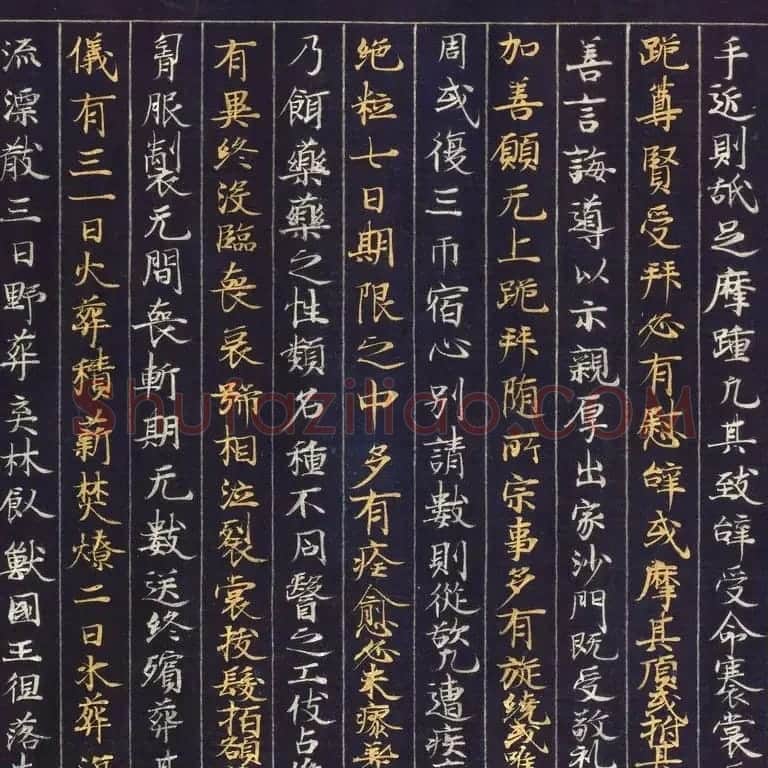 手近則舐足摩踵凡其致辝受命褰裳
跪尊賢受拜必有慰辝或摩其頂或拊其
善言誨導以示親厚出家沙門既受敬礼
加善願无上跪拜随所宗事多有旋繞或唯
周或復三帀宿心別請數則從欲凡遭疾
绝粒七日期限之中多有痊愈必未瘳
乃餌藥藥之性類名種不同醫之工伎占
有異終没臨喪哀號相泣裂裳拔髮拍額
胷服製无間喪斬期无數送終殯葬其
儀有三一日火葬積薪焚燎二日水葬
流漂散三日野葬弃林飤獸國王徂落
Shufaziliao.COM